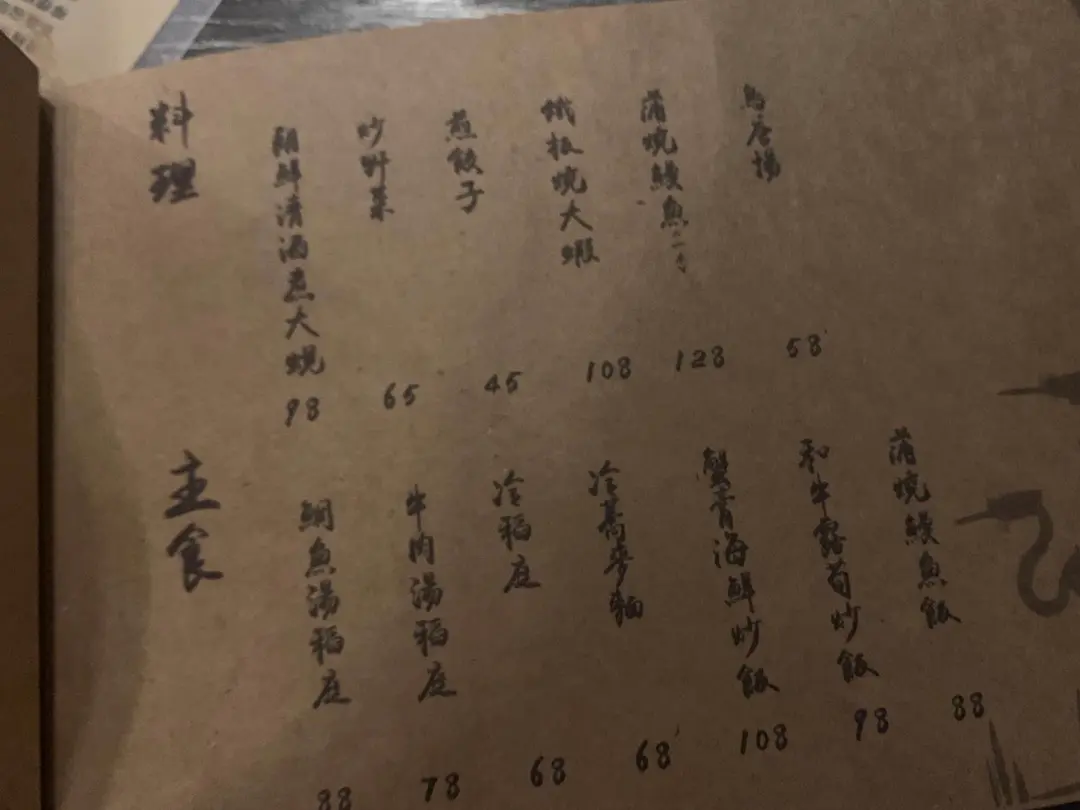 料理
鮮清酒煮大蜆
98
炒野菜
65
煎餃子
45
鐵板燒大蝦
108
蒲燒鰻魚
128
鳥唐揚
58
主食
鯛魚湯稻庭
88
牛肉湯稻庭
78
冷稻庭
68
冷蕎麥麵
68
蟹膏海鮮炒飯
108
和牛露荀炒飯
98
蒲燒鰻魚飯
88